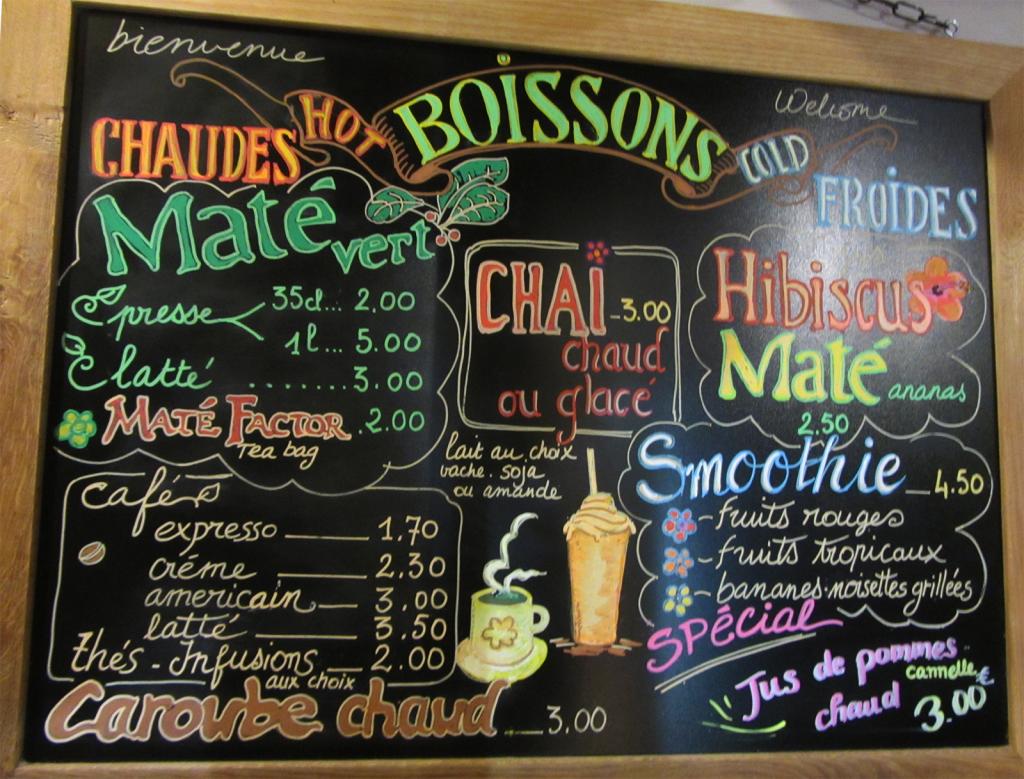 bienvenue
Welcome
HOT BOISSONS COLD
CHAUDES
FROIDES
Maté
vert
presse 35cl... 2.00
1l... 5.00
latté ........3.00
MATÉ FACTOR .2.00
Tea bag
CHAI 3.00
chaud
ou glacé
Hibiscus
Maté ananas
2.50
lait au choix
vache. soja
ou amande
Cafés
expresso 1,70
crème 2.30
americain 3.00
latté 3.50
thés - Infusions 2.00
aux choix
Caroube chaud 3.00
Smoothie 4.50
- fruits rouges
- fruits tropicaux
- bananes-noisettes grillées
SPÉCIAL
Jus de pommes
chaud cannelle
3.00 €